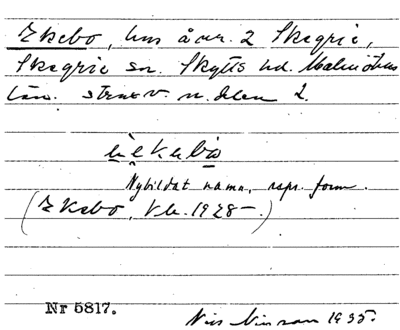 Ekebo, hus å nr. 2 Skegrie,
Skegrie sn. Skytts hd. Malmöhus
län. strax v. n. delen 2.
Nybildat namn, rspr. form.
(Ekebo, Vk. 1928-.)
Nr 5817.
Nils Nilsson 1935.